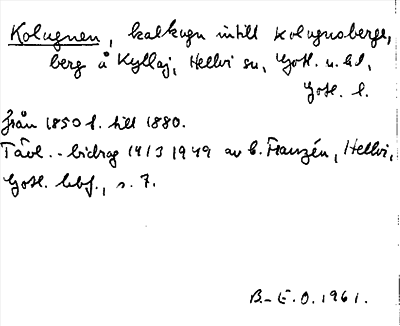 Kolugnen, kalkugn intill Kolugnsberge,
berg å Kyllaj, Hellvi sn, Gotl. n. hd,
Gotl. l.
från 1850 t. till 1880.
Tävl.-bidrag 1913 1949 av C. Franzén, Hellvi,
Gotl. s. 7.
B-E. O. 1961.